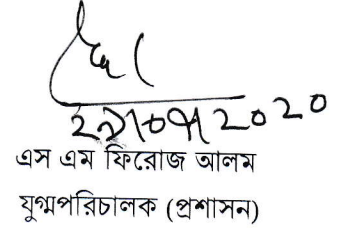 2020
এস এম ফিরোজ আলম
যুগ্মপরিচালক (প্রশাসন)